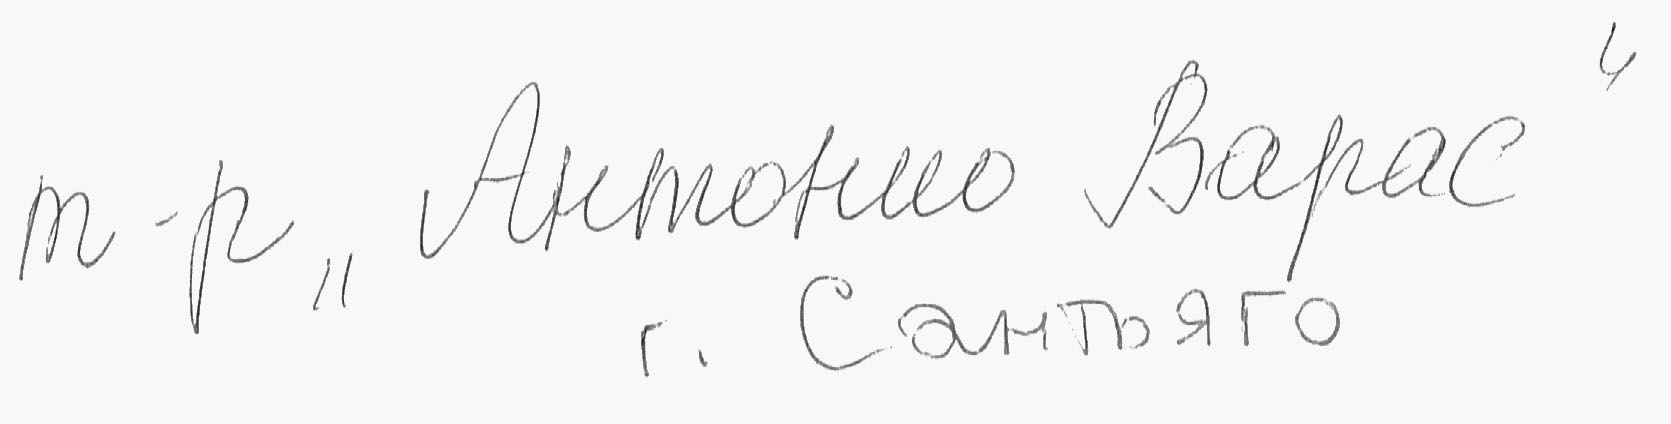 т-р „Антонио Варас“
г. Сантьяго